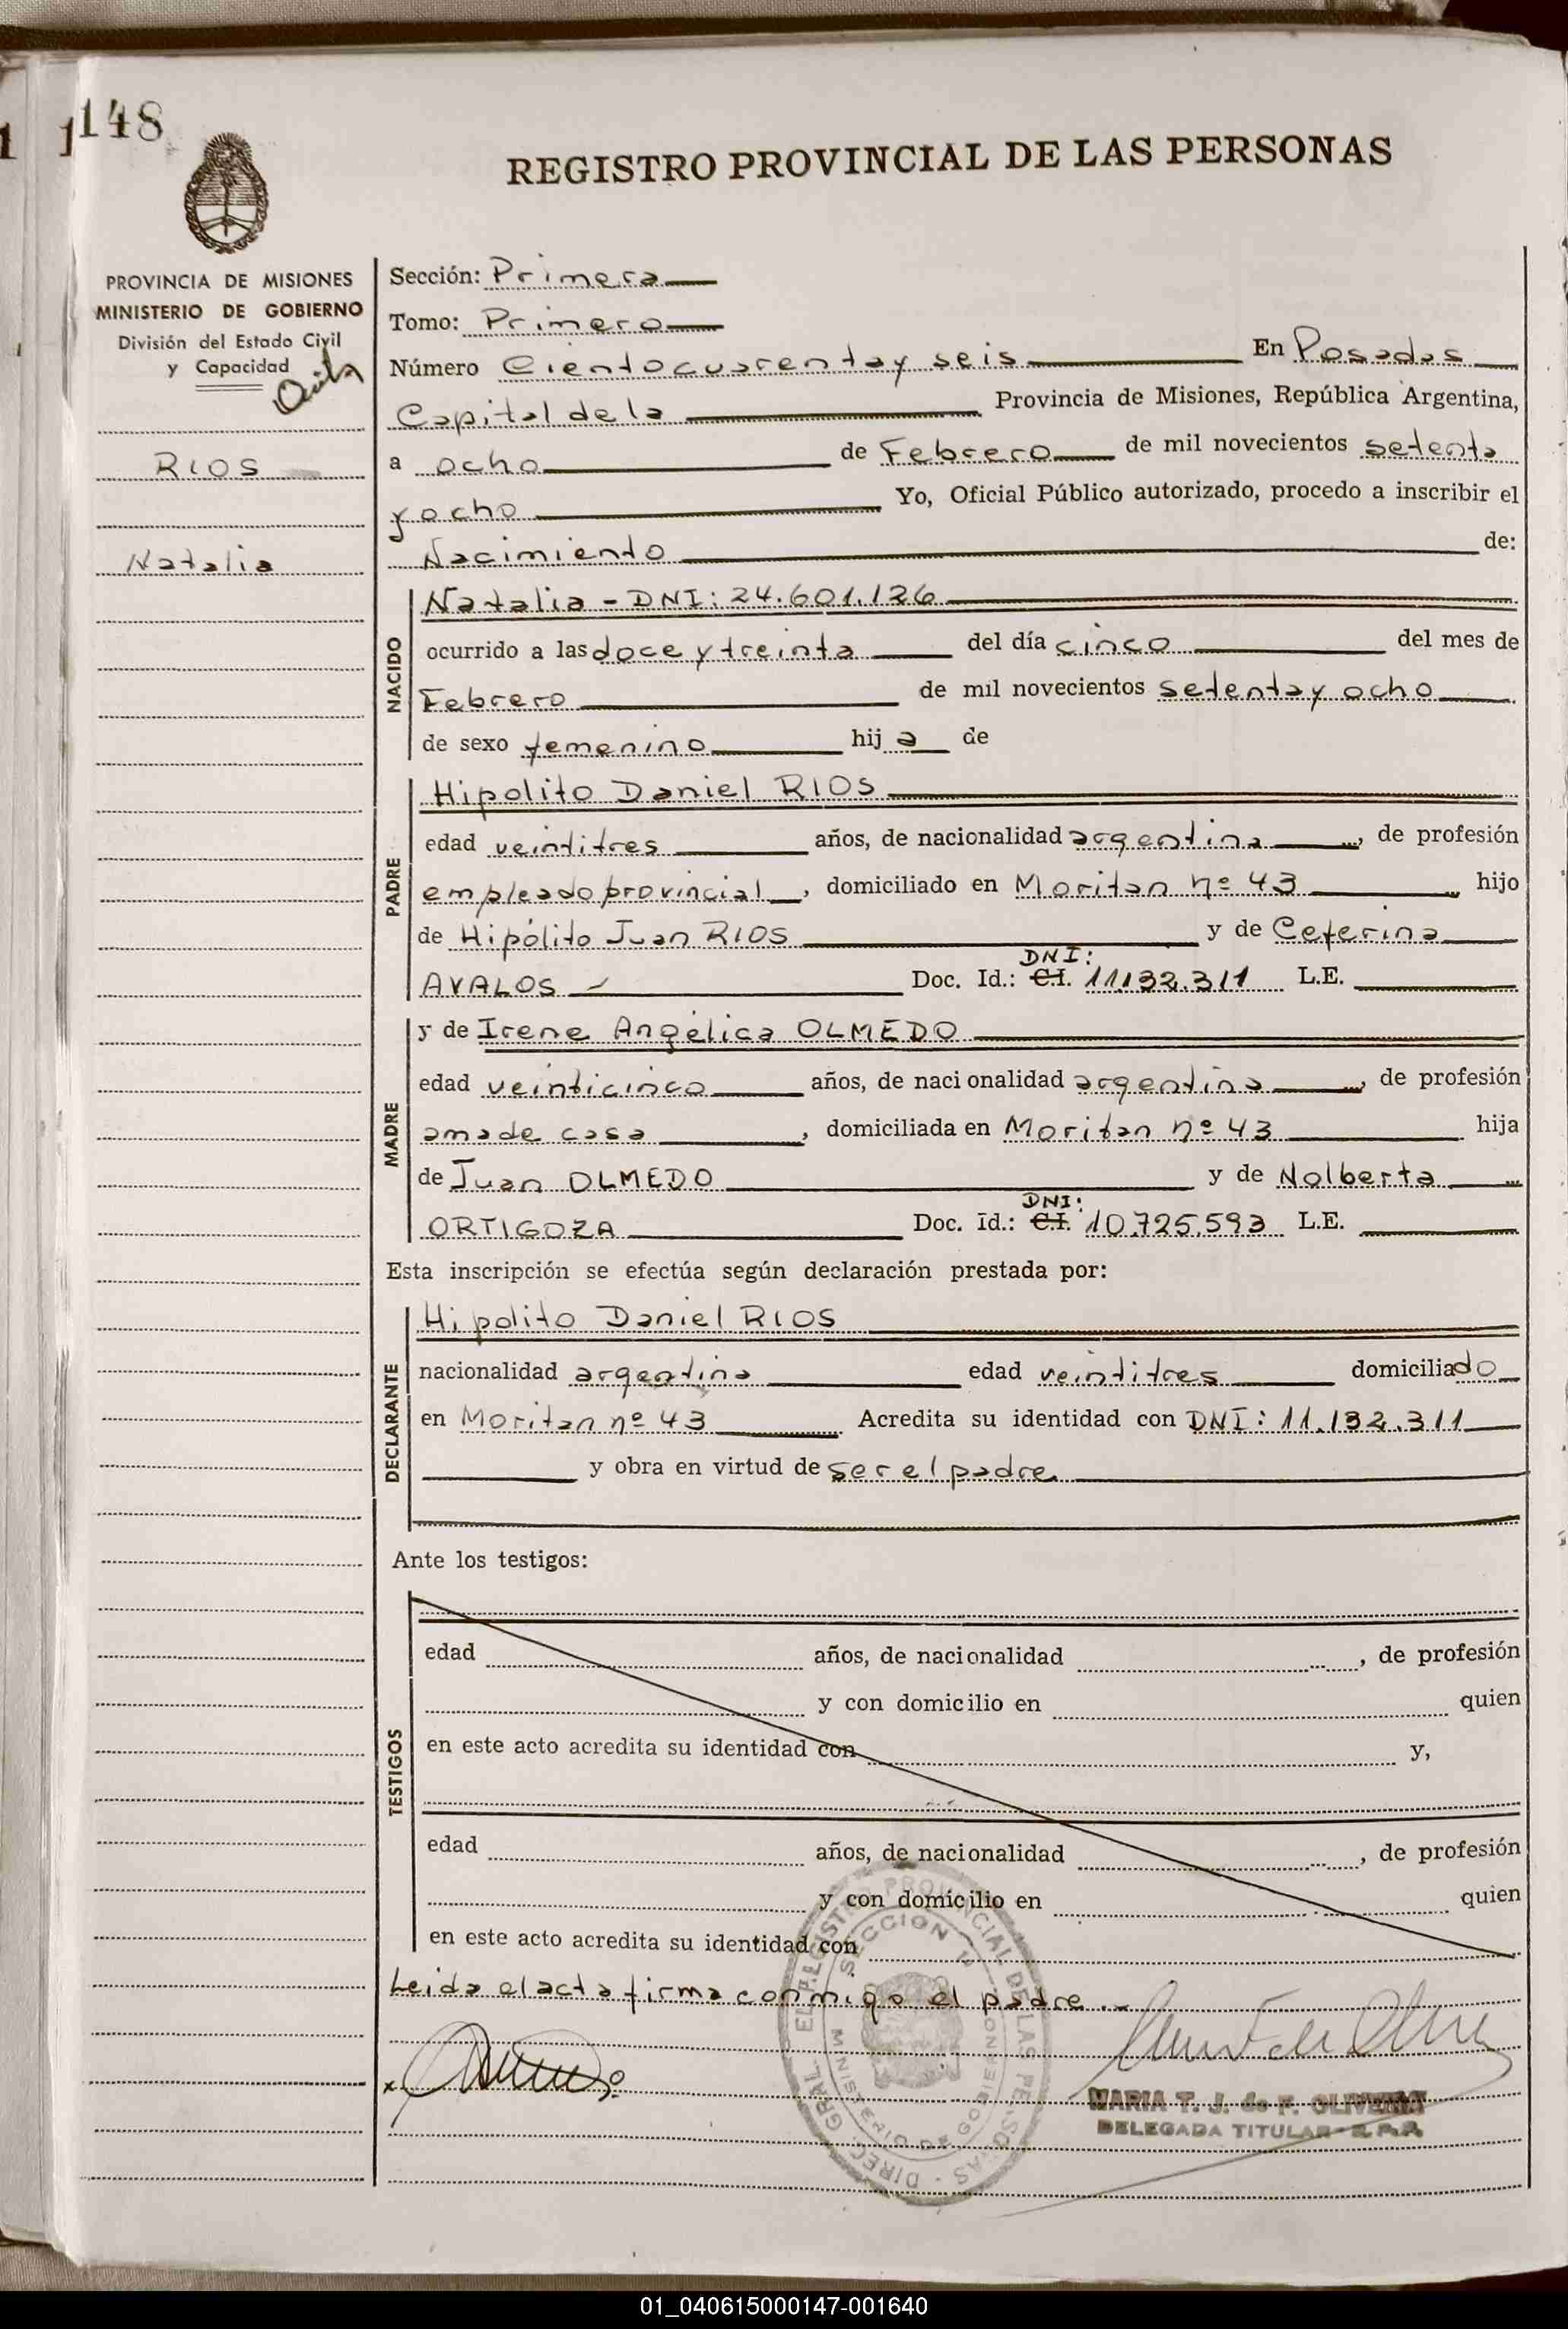 148
REGISTRO PROVINCIAL DE LAS PERSONAS
PROVINCIA DE MISIONES
MINISTERIO DE GOBIERNO
División del Estado Civil
y Capacidad
RIOS
Natalia
Sección: Primera
Tomo: Primero
Número Ciento cuarenta y seis En Posadas
Capital de la Provincia de Misiones, República Argentina,
a ocho de Febrero de mil novecientos setenta
y ocho Yo, Oficial Público autorizado, procedo a inscribir el
Nacimiento de:
NACIDO
Natalia - DNI: 24.601.126
ocurrido a las doce y treinta del día cinco del mes de
Febrero de mil novecientos setenta y ocho
de sexo femenino hij a de
PADRE
Hipolito Daniel RIOS
edad veintitres años, de nacionalidad argentina, de profesión
empleado provincial, domiciliado en Moritan nº 43 hijo
de Hipólito Juan RIOS y de Ceferina
DNI:
AVALOS Doc. Id.: C.I. 11.132.311 L.E.
MADRE
y de Irene Angélica OLMEDO
edad veinticinco años, de nacionalidad argentina, de profesión
ama de casa, domiciliada en Moritan nº 43 hija
de Juan OLMEDO y de Nolberta
DNI:
ORTIGOZA Doc. Id.: C.I. 10.725.593 L.E.
Esta inscripción se efectúa según declaración prestada por:
DECLARANTE
Hipolito Daniel RIOS
nacionalidad argentina edad veintitres domiciliado
en Moritan nº 43 Acredita su identidad con DNI: 11.132.311
y obra en virtud de ser el padre
Ante los testigos:
TESTIGOS
edad años, de nacionalidad , de profesión
y con domicilio en quien
en este acto acredita su identidad con y,
edad años, de nacionalidad , de profesión
y con domicilio en quien
en este acto acredita su identidad con
Leida el acta firma conmigo el padre.-
MARIA T. J. de F. OLIVEIRA
DELEGADA TITULAR - R.P.P.
01_040615000147-001640